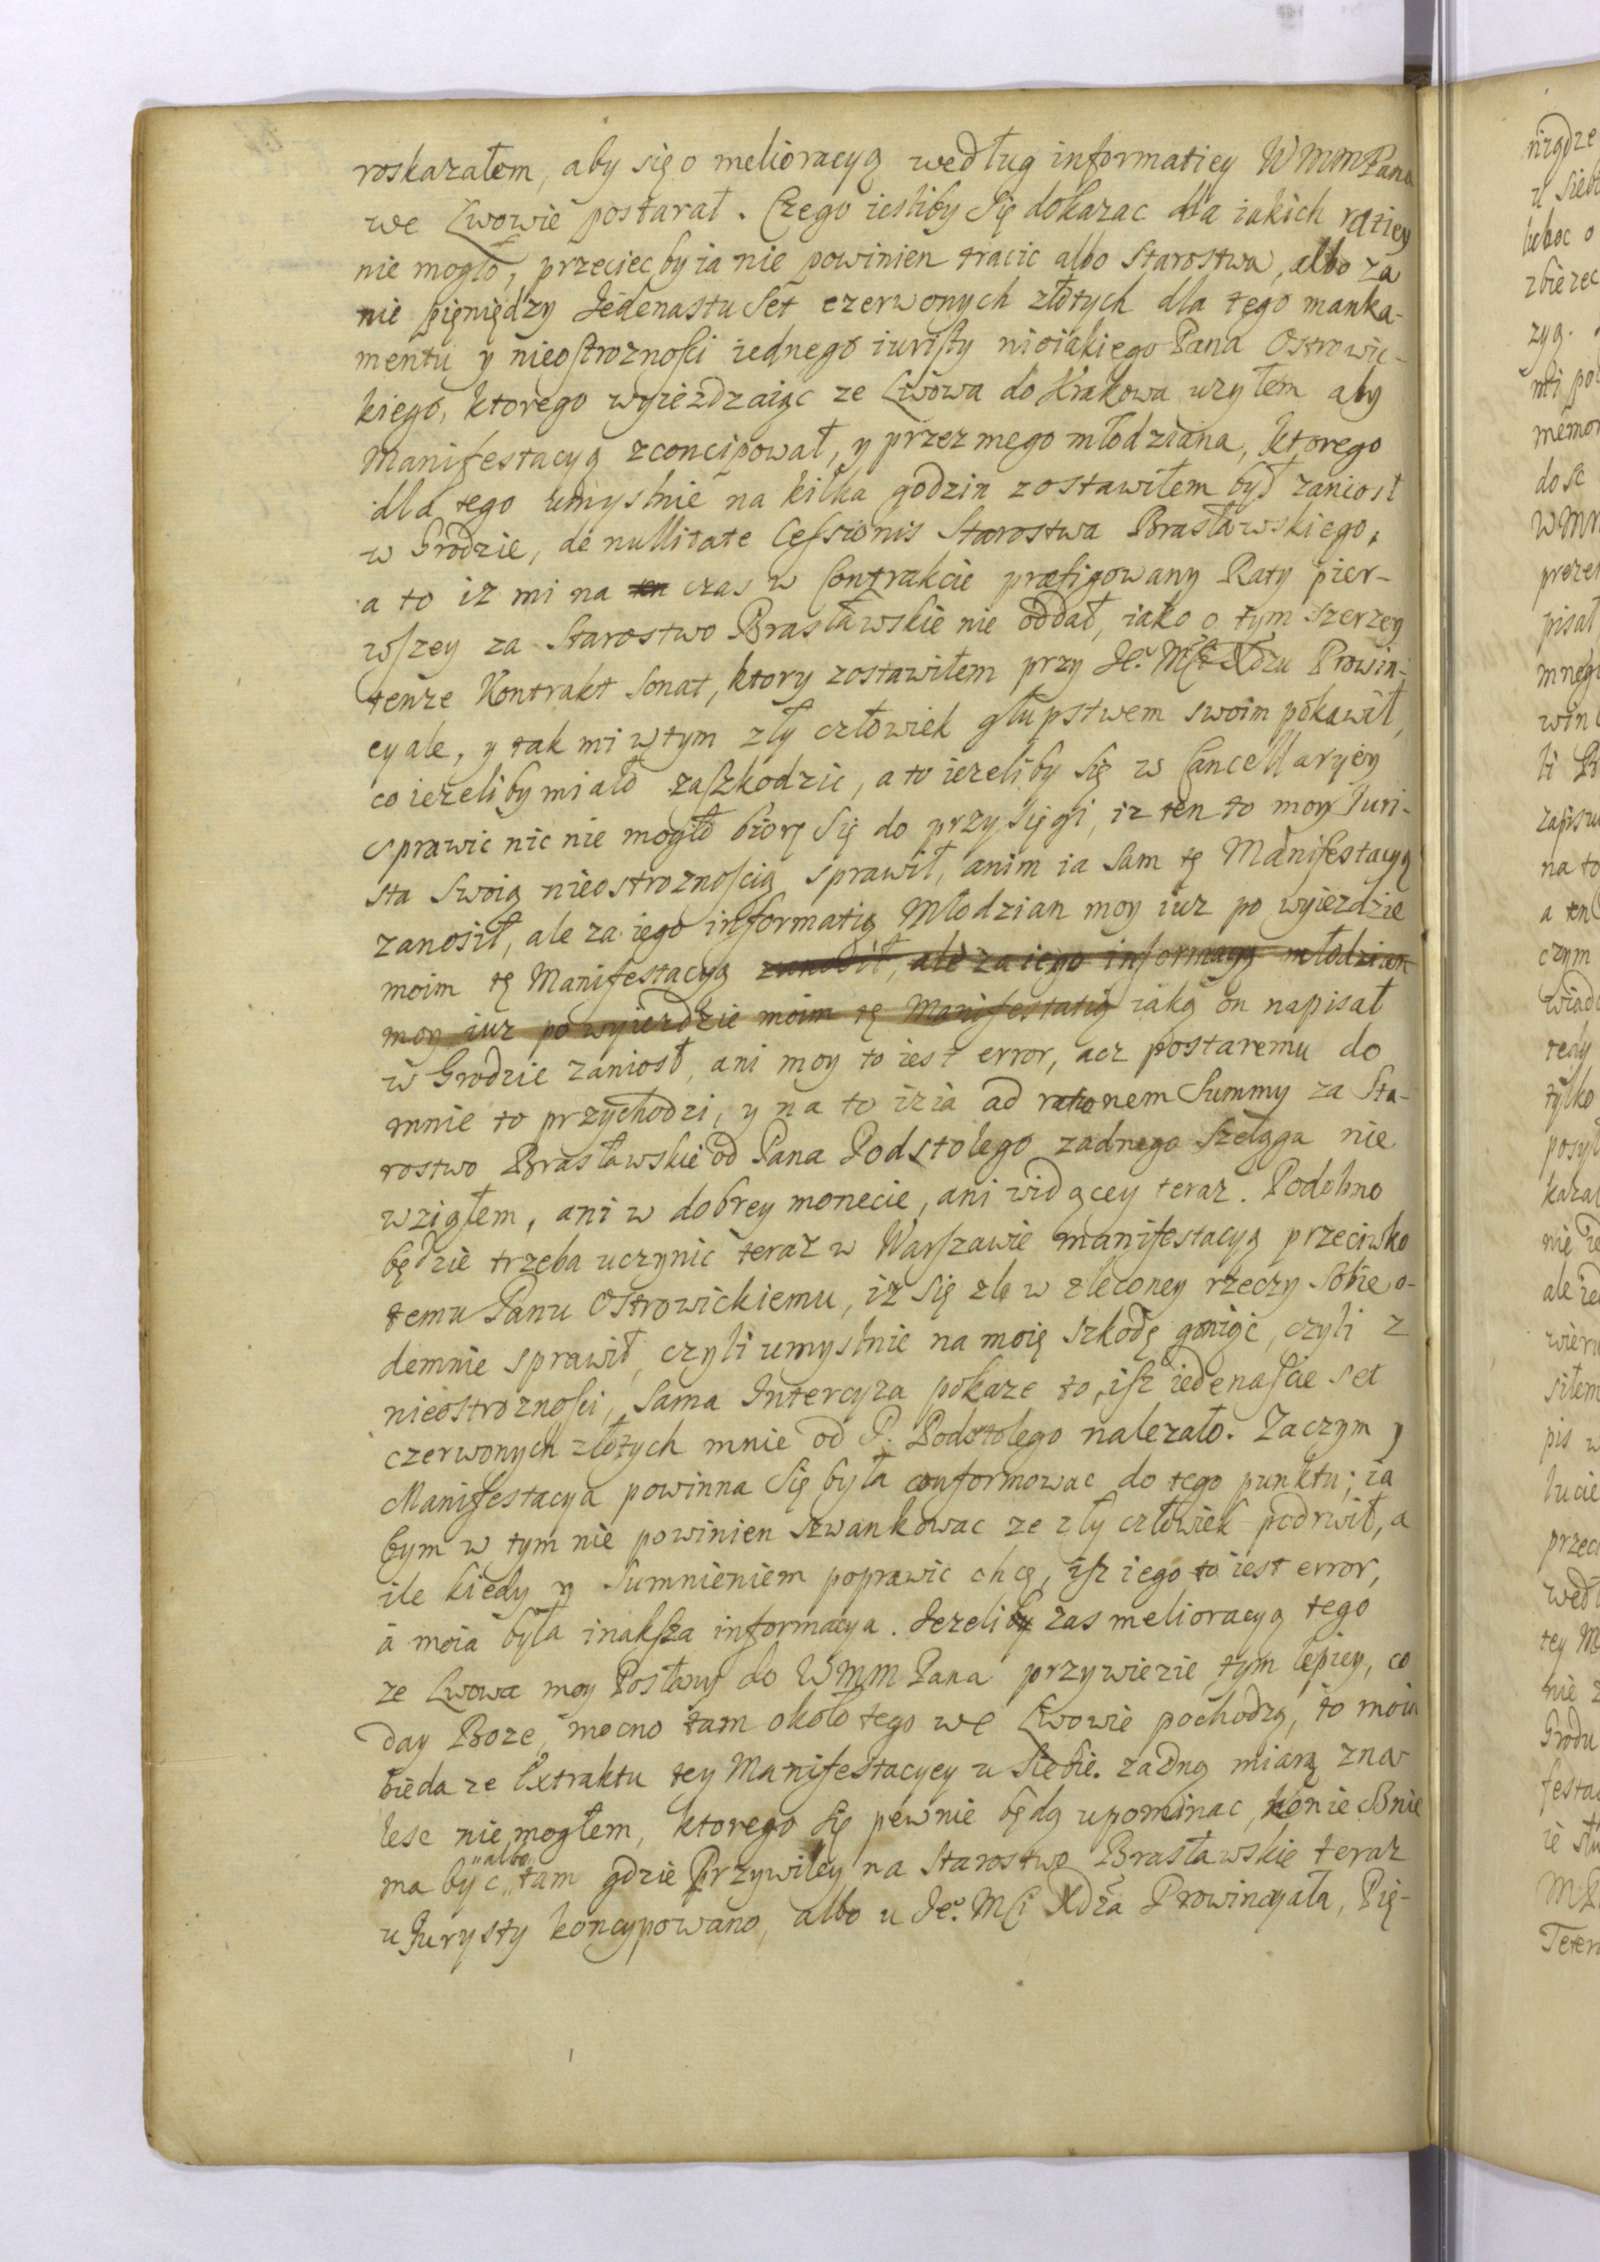 roskazałem, aby się o melioracyą według informatiey WMMPana
we Lwowie postarał. Czego iesliby się dokazac dla iakich raciey
nie mogło, przeciec by ia nie powinien tracic albo Starostwa, albo za
nie pięniędzy Jedenastu Set czerwonych złotych dla tego manka-
mentu y nieostroznosci iednego iuristy nieiakiego Pana Ostrowic-
kiego, ktorego wyiezdzaiąc ze Lwowa do Krakowa uzyłem aby
Manifestacyą zconcipował, y przez mego młodziana, ktorego
dla tego umyslnie na kilka godzin zostawiłem był zaniosł
w Grodzie, de nullitate Cessionis Starostwa Brasławskiego,
a to iz mi na ten czas w Contrakcie præfigowany Raty pier-
wszey za Starostwo Brasławskie nie oddał, iako o tym szerzey
tenze Kontrakt Sonat, ktory zostawiłem przy Je° Mści Xdzu Prowin-
cyale, y tak mi w tym zły człowiek głupstwem swoim pokawił,
co iezeliby miało zaszkodzic, a to iezeliby się w Cancellaryey
sprawic nic nie mogło biorę się do przysięgi, iz ten to moy Juri-
sta swoią nieostroznoscią sprawił, anim ia sam tę Manifestacyą
zanosił, ale za iego informatią Młodzian moy iuz po wyiezdzie
moim tę Manifestacyą zanosił, ale za iego informacyą młodzian
moy iuz po wyiezdzie moim tę Manifestatią iaką on napisał
w Grodzie zaniosł, ani moy to iest error, acz postaremu do
mnie to przychodzi, y na to iz ia ad rationem Summy za Sta-
rostwo Brasławskie od Pana Podstolego zadnego Szeląga nie
wziąłem, ani w dobrey monecie, ani widącey teraz. Podobno
będzie trzeba uczynic teraz w Warszawie manifestacyą przeciwko
temu Panu Ostrowickiemu, iz się zle w zleconey rzeczy Sobie o-
demnie sprawił, czyli umyslnie na moię szkodę goniąc, czyli z
nieostroznosci, Sama Intercyza pokaze to, isz iedenascie set
czerwonych złotych mnie od P. Podstolego nalezało. Zaczym y
Manifestacya powinna się była conformowac do tego punktu; ia
bym w tym nie powinien szwankowac ze zły człowiek podrwił, a
ile kiedy y Sumnieniem poprawic chcę, isz iego to iest error,
a moia była inaksza informacya. Jezeliby zas melioracyą tego
ze Lwowa moy Posłany do WMM Pana przywiezie tym lepiey, co
day Boze, mocno tam około tego we Lwowie pochodzą, to moia
bieda ze Extraktu tey Manifestacyey u Siebie zadną miarą zna-
lesc nie mogłem, ktorego się pewnie będą upominac, koniecznie
ma byc "albo" tam gdzie Przywiley na Starostwo Brasławskie teraz
u Jurysty koncypowano, albo u Je° Mści Xdza Prowincyała, Pię-